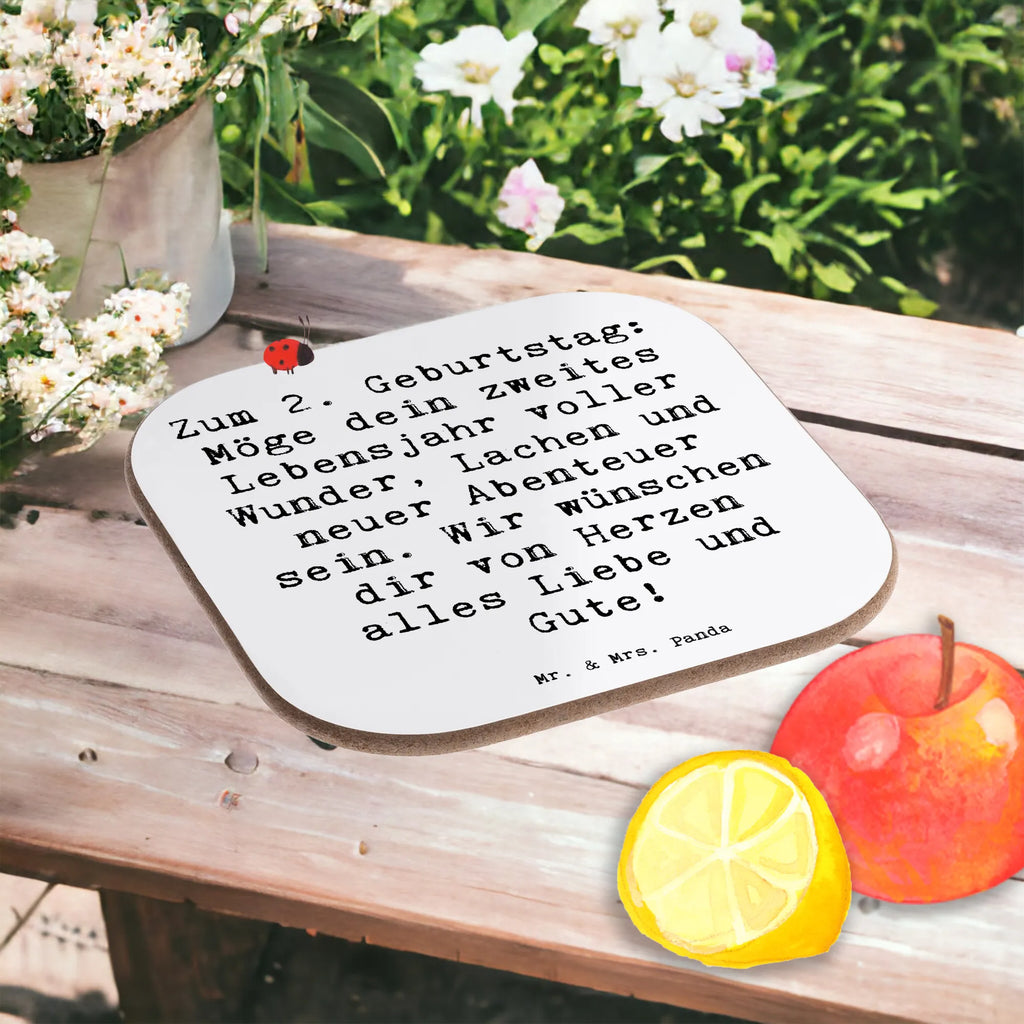 Zum 2. Geburtstag:
Möge dein zweites
Lebensjahr voller
Wunder, Lachen und
neuer Abenteuer
sein. Wir wünschen
dir von Herzen
alles Liebe und
Gute!
Mr. & Mrs. Panda